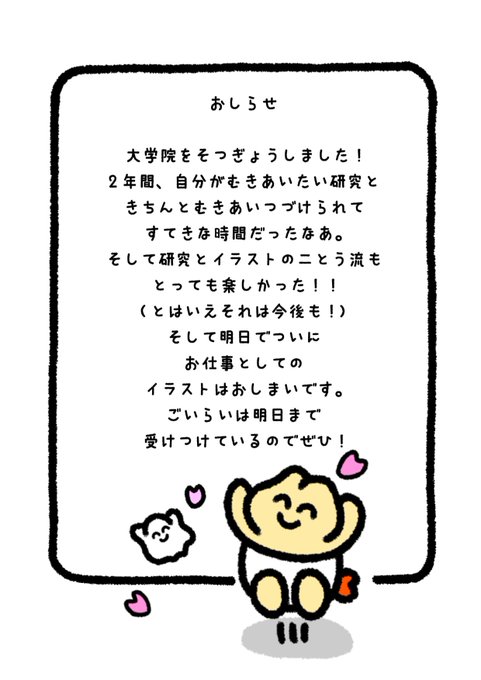 おしらせ
大学院をそつぎょうしました！
２年間、自分がむきあいたい研究と
きちんとむきあいつづけられて
すてきな時間だったなあ。
そして研究とイラストの二とう流も
とっても楽しかった！！
(とはいえそれは今後も！)
そして明日でついに
お仕事としての
イラストはおしまいです。
ごいらいは明日まで
受けつけているのでぜひ！